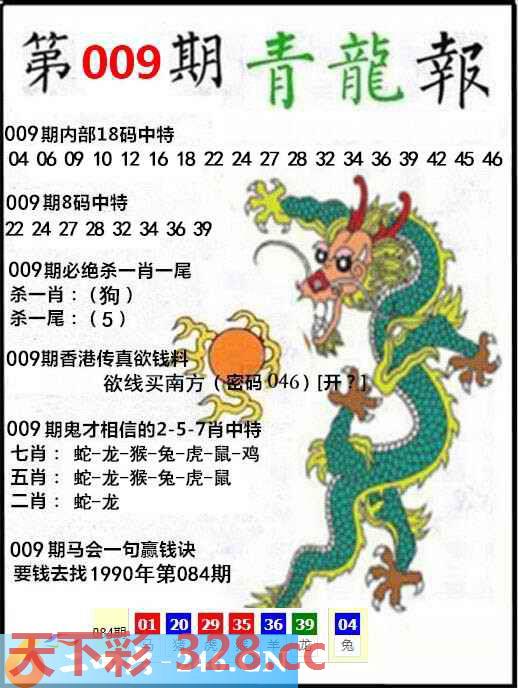 第009期青龍報
009期内部18码中特
04 06 09 10 12 16 18 22 24 27 28 32 34 36 39 42 45 46
009期8码中特
22 24 27 28 32 34 36 39
009期必绝杀一肖一尾
杀一肖：（狗）
杀一尾：（5）
009期香港传真欲钱料
欲线买南方（密码046）[开？]
009期鬼才相信的2-5-7肖中特
七肖： 蛇-龙-猴-兔-虎-鼠-鸡
五肖： 蛇-龙-猴-兔-虎-鼠
二肖： 蛇-龙
009期马会一句赢钱诀
要钱去找1990年第084期
084期 01 20 29 35 36 39 04
马 猪 虎 羊 龙 兔
天下彩-328.cc